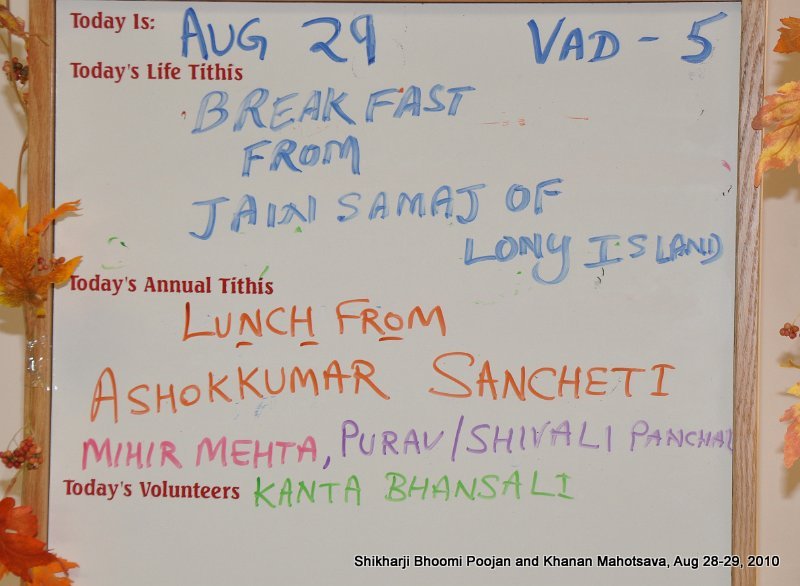 Today Is: AUG 29 VAD - 5
Today's Life Tithis
BREAKFAST
FROM
JAIN SAMAJ OF
LONY ISLAND
Today's Annual Tithis
LUNCH FROM
ASHOKKUMAR SANCHETI
MIHIR MEHTA, PURAV/SHIVALI PANCHAL
Today's Volunteers KANTA BHANSALI
Shikharji Bhoomi Poojan and Khanan Mahotsava, Aug 28-29, 2010